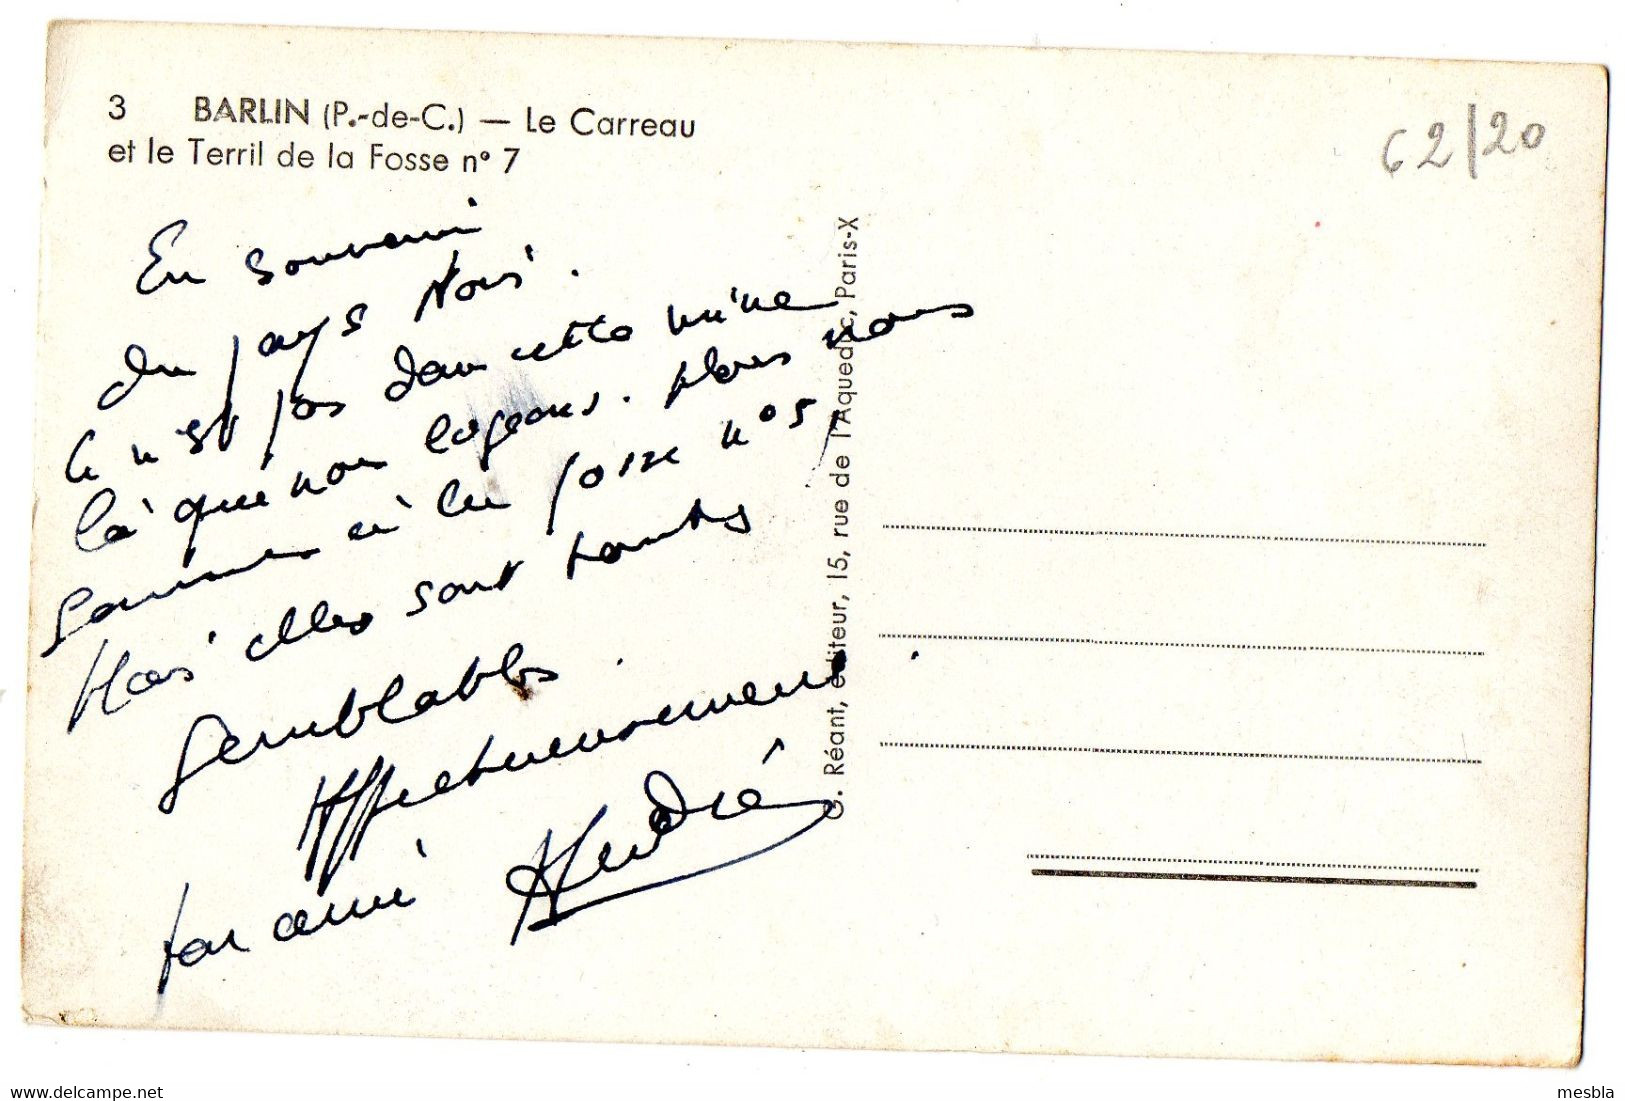 3 BARLIN (P.-de-C.) — Le Carreau
et le Terril de la Fosse n° 7
62/20
En souvenir
du pays Noir.
Ce n'est pas dans cette mine
là que nous logeons. Nous nous
sommes à la fosse n° 5,
Mais elles sont toutes
semblables.
Affectueusement.
ton ami André
G. Réant, éditeur, 15, rue de l'Aqueduc, Paris-X
mesbla